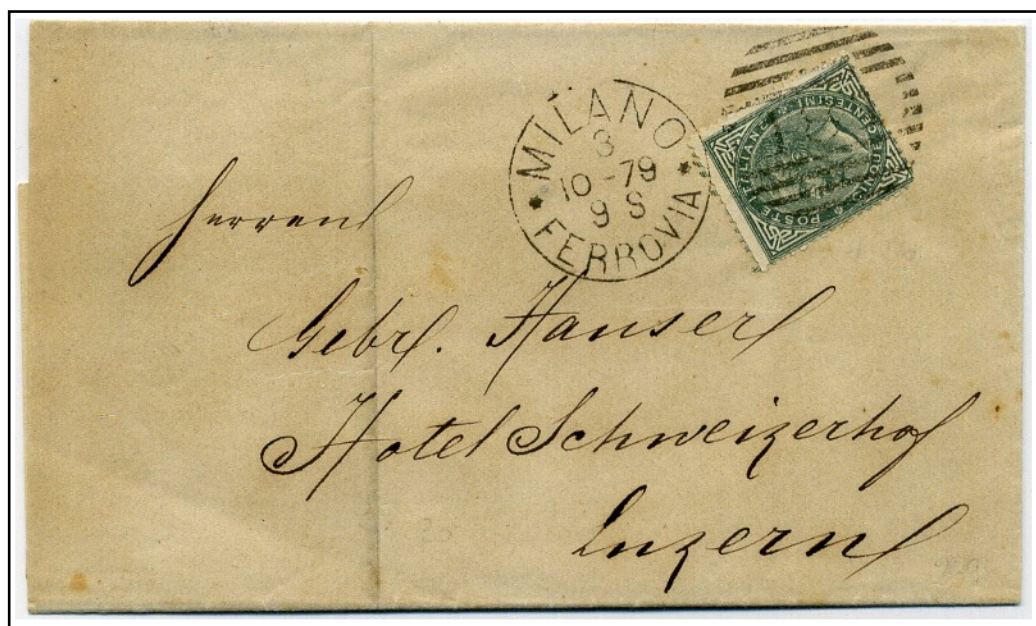 MILANO
8
10-79
9 S
FERROVIA
POSTE ITALIANE
CINQUE CENTESIMI
Herren
Gebr. Hauser
Hotel Schweizerhof
Luzern